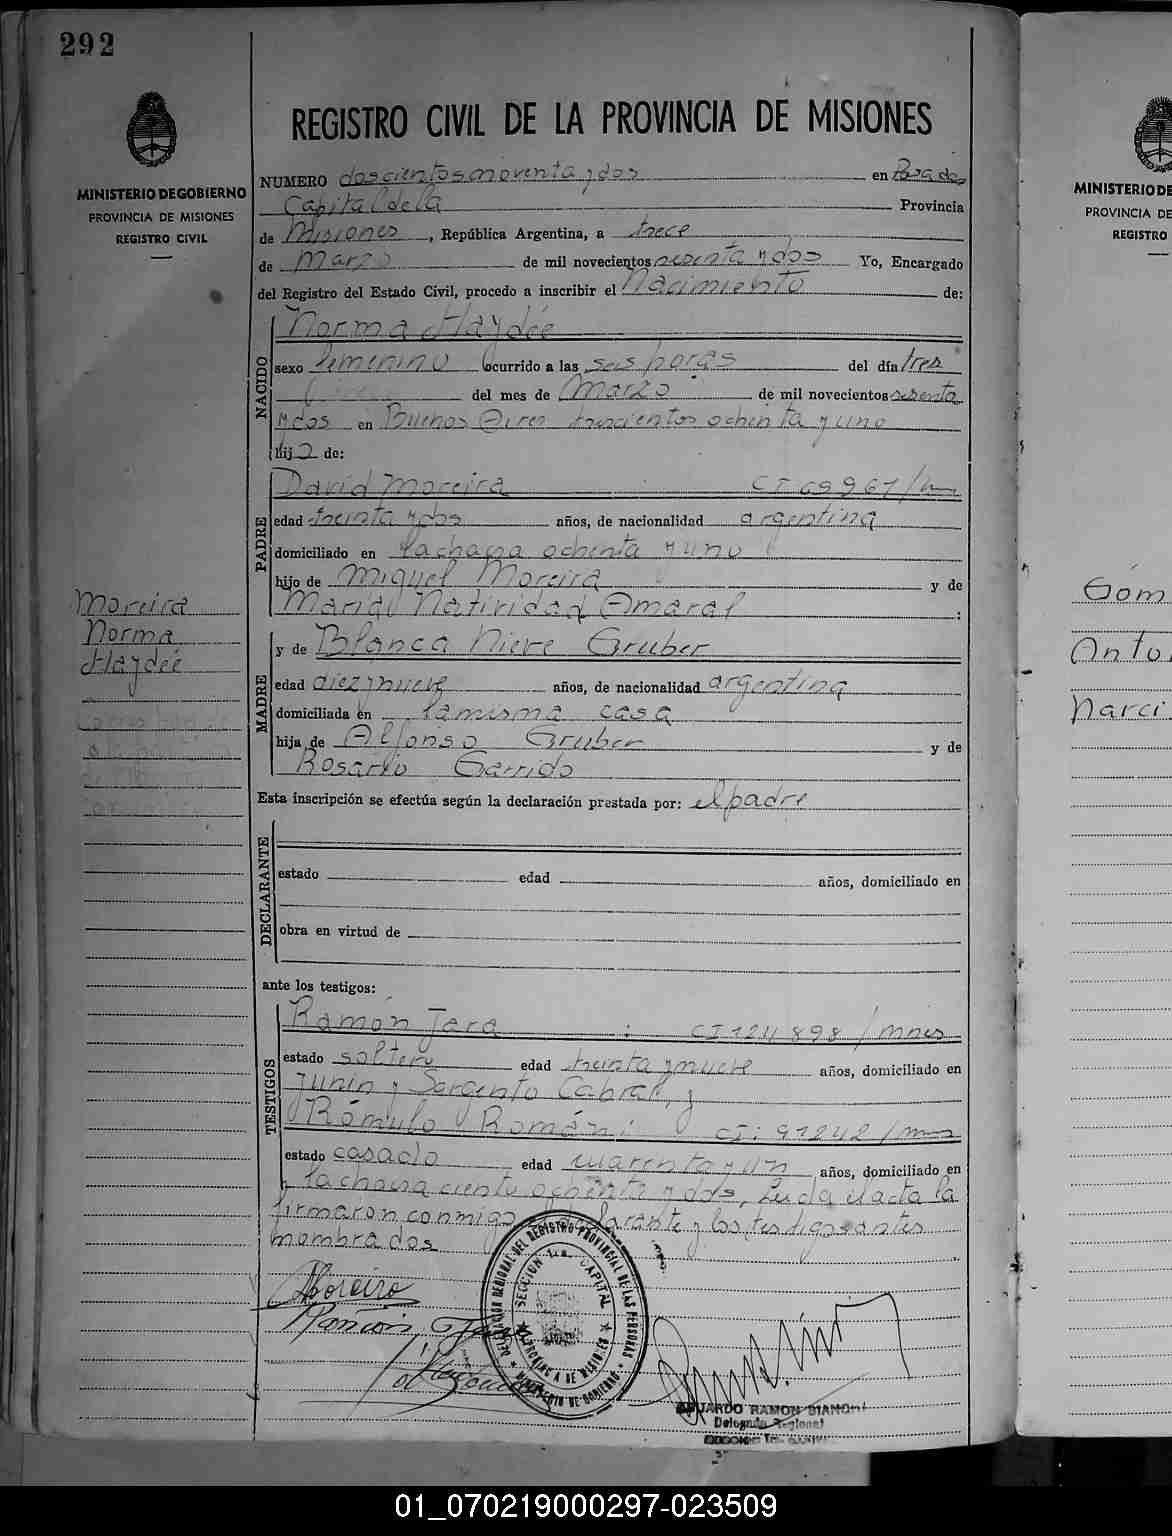 292
MINISTERIO DE GOBIERNO
PROVINCIA DE MISIONES
REGISTRO CIVIL
REGISTRO CIVIL DE LA PROVINCIA DE MISIONES
NUMERO doscientos noventa y dos en Posadas
Capital de la Provincia
de Misiones, República Argentina, a trece
de Marzo de mil novecientos sesenta y dos Yo, Encargado
del Registro del Estado Civil, procedo a inscribir el Nacimiento de:
NACIDO
Norma Haydée
sexo femenino ocurrido a las seis horas del día tres
del mes de Marzo de mil novecientos sesenta
y dos en Buenos Aires trescientos ochenta y uno
hija de:
PADRE
David Moreira CI 69961/mns
edad treinta y dos años, de nacionalidad argentina
domiciliado en la chacra ochenta y uno
hijo de Miguel Moreira y de
María Natividad Amaral :
MADRE
y de Blanca Nieve Gruber
edad diez y nueve años, de nacionalidad argentina
domiciliada en la misma casa
hija de Alfonso Gruber y de
Rosario Garrido
Esta inscripción se efectúa según la declaración prestada por: el padre
DECLARANTE
estado edad años, domiciliado en
obra en virtud de
ante los testigos:
TESTIGOS
Ramón Jara : CI 124898/mnes
estado soltero edad treinta y nueve años, domiciliado en
Junín y Sargento Cabral, y
Rómulo Román: CI: 91242/mns
estado casado edad cuarenta y un años, domiciliado en
la chacra ciento ochenta y dos, Leída el acta la
firmaron conmigo larante y los testigos antes
nombrados
Moreira
Norma
Haydée
DMoreira
EDUARDO RAMON BIANCHI
Delegado Regional
DELEGACION REGIONAL DEL REGISTRO PROVINCIAL DE LAS PERSONAS
SECCION 1ra. CAPITAL
PROVINCIA DE MISIONES
MINISTERIO DE GOBIERNO
MINISTERIO DE
PROVINCIA DE
REGISTRO
Góm
Anto
Narci
01_070219000297-023509